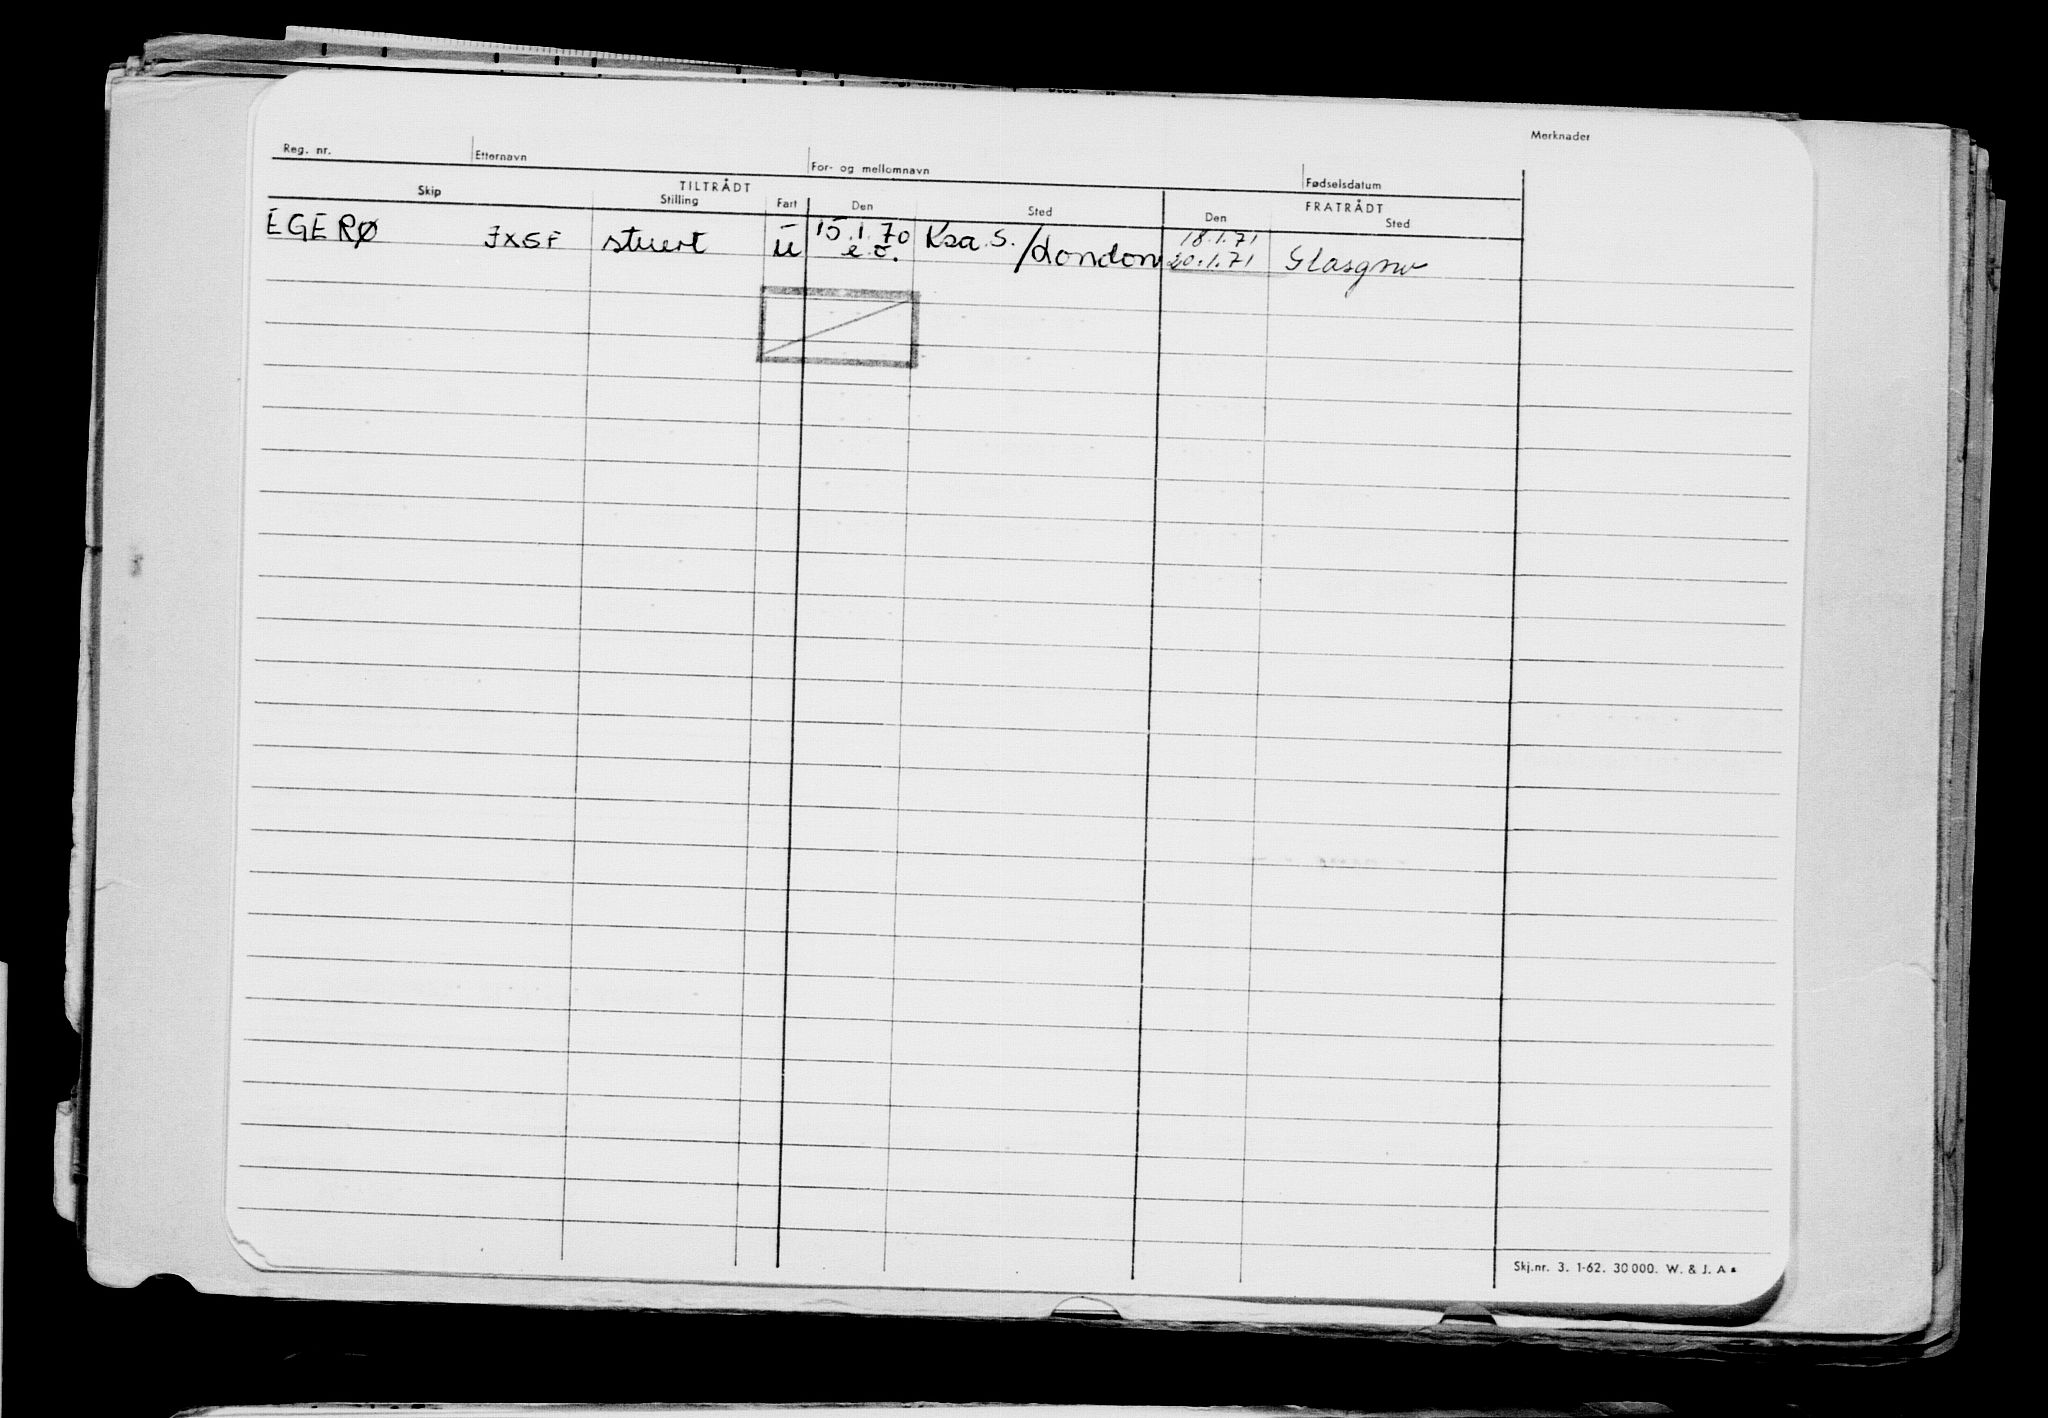 Merknader
Reg. nr. Etternavn For- og mellomnavn Fødselsdatum
TILTRÅDT FRATRÅDT
Skip Stilling Fart Den Sted Den Sted
EGERØ JXGF stuert u 15.1.70 Ksa. S. /London 18.1.71
e.o. 20.1.71 Glasgow
Skj.nr. 3. 1-62. 30 000. W. & J. A s